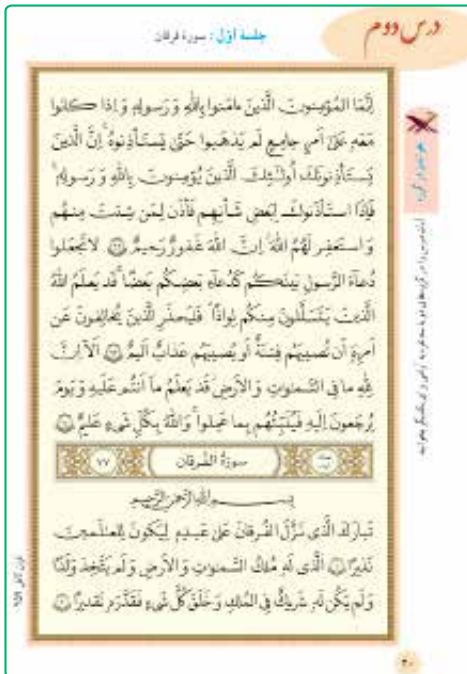 درس دوم
جلسهٔ اوّل : سورهٔ فرقان
اِنَّمَا المُؤمِنونَ الَّذینَ ءامَنوا بِاللهِ وَ رَسولِهِ وَ اِذا کانوا
مَعَهُ عَلیٰ اَمرٍ جامِعٍ لَم یَذهَبوا حَتّیٰ یَستَأذِنوهُ اِنَّ الَّذینَ
یَستَأذِنونَکَ اُولٰئِکَ الَّذینَ یُؤمِنونَ بِاللهِ وَ رَسولِهِ
فَاِذَا استَأذَنوکَ لِبَعضِ شَأنِهِم فَأذَن لِمَن شِئتَ مِنهُم
وَ استَغفِر لَهُمُ اللهَ اِنَّ اللهَ غَفورٌ رَحیمٌ ۶۲ لا تَجعَلوا
دُعاءَ الرَّسولِ بَینَکُم کَدُعاءِ بَعضِکُم بَعضًا قَد یَعلَمُ اللهُ
الَّذینَ یَتَسَلَّلونَ مِنکُم لِواذًا فَلیَحذَرِ الَّذینَ یُخالِفونَ عَن
اَمرِهِ اَن تُصیبَهُم فِتنَةٌ اَو یُصیبَهُم عَذابٌ اَلیمٌ ۶۳ اَلا اِنَّ
لِلهِ ما فِی السَّمٰوٰتِ وَ الاَرضِ قَد یَعلَمُ ما اَنتُم عَلَیهِ وَ یَومَ
یُرجَعونَ اِلَیهِ فَیُنَبِّئُهُم بِما عَمِلوا وَ اللهُ بِکُلِّ شَیءٍ عَلیمٌ ۶۴
سورَةُ الفُرقان ۷۷
بِسمِ اللهِ الرَّحمٰنِ الرَّحیمِ
تَبارَکَ الَّذی نَزَّلَ الفُرقانَ عَلیٰ عَبدِهِ لِیَکونَ لِلعٰلَمینَ
نَذیرًا ۱ اَلَّذی لَهُ مُلکُ السَّمٰوٰتِ وَ الاَرضِ وَ لَم یَتَّخِذ وَلَدًا
وَ لَم یَکُن لَهُ شَریکٌ فِی المُلکِ وَ خَلَقَ کُلَّ شَیءٍ فَقَدَّرَهُ تَقدیرًا ۲
۳۰